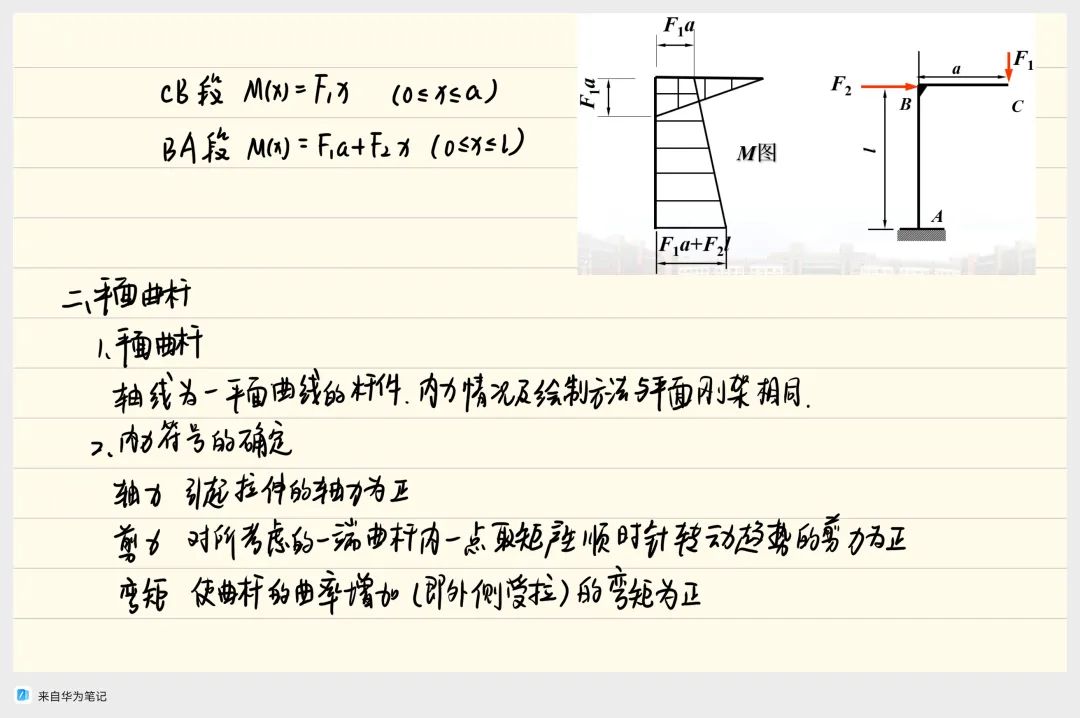 CB段 M(x)=F₁x (0≤x≤a)
BA段 M(x)=F₁a+F₂x (0≤x≤l)
F₁a
F₁a
M图
F₁a+F₂l
F₁
a
F₂
B
C
l
A
二、平面曲杆
1、平面曲杆
轴线为一平面曲线的杆件.内力情况及绘制方法与平面刚架相同.
2、内力符号的确定
轴力 引起拉伸的轴力为正
剪力 对所考虑的一端曲杆内一点取矩产生顺时针转动趋势的剪力为正
弯矩 使曲杆的曲率增加(即外侧受拉)的弯矩为正
来自华为笔记